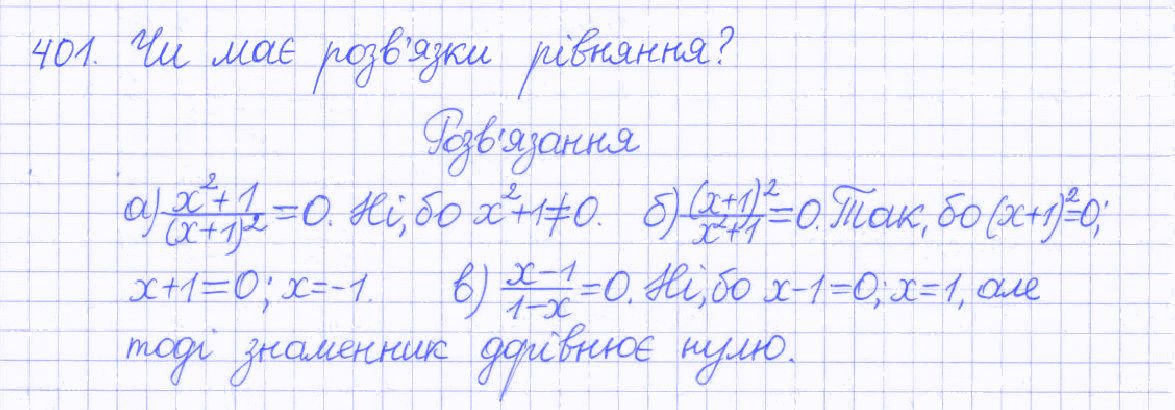 401. Чи має розв'язки рівняння?
Розв'язання
а) (x²+1)/(x+1)² = 0. Ні, бо x²+1≠0. б) (x+1)²/(x²+1) = 0. Так, бо (x+1)²=0;
x+1=0; x=-1. в) (x-1)/(1-x) = 0. Ні, бо x-1=0; x=1, але
тоді знаменник дорівнює нулю.